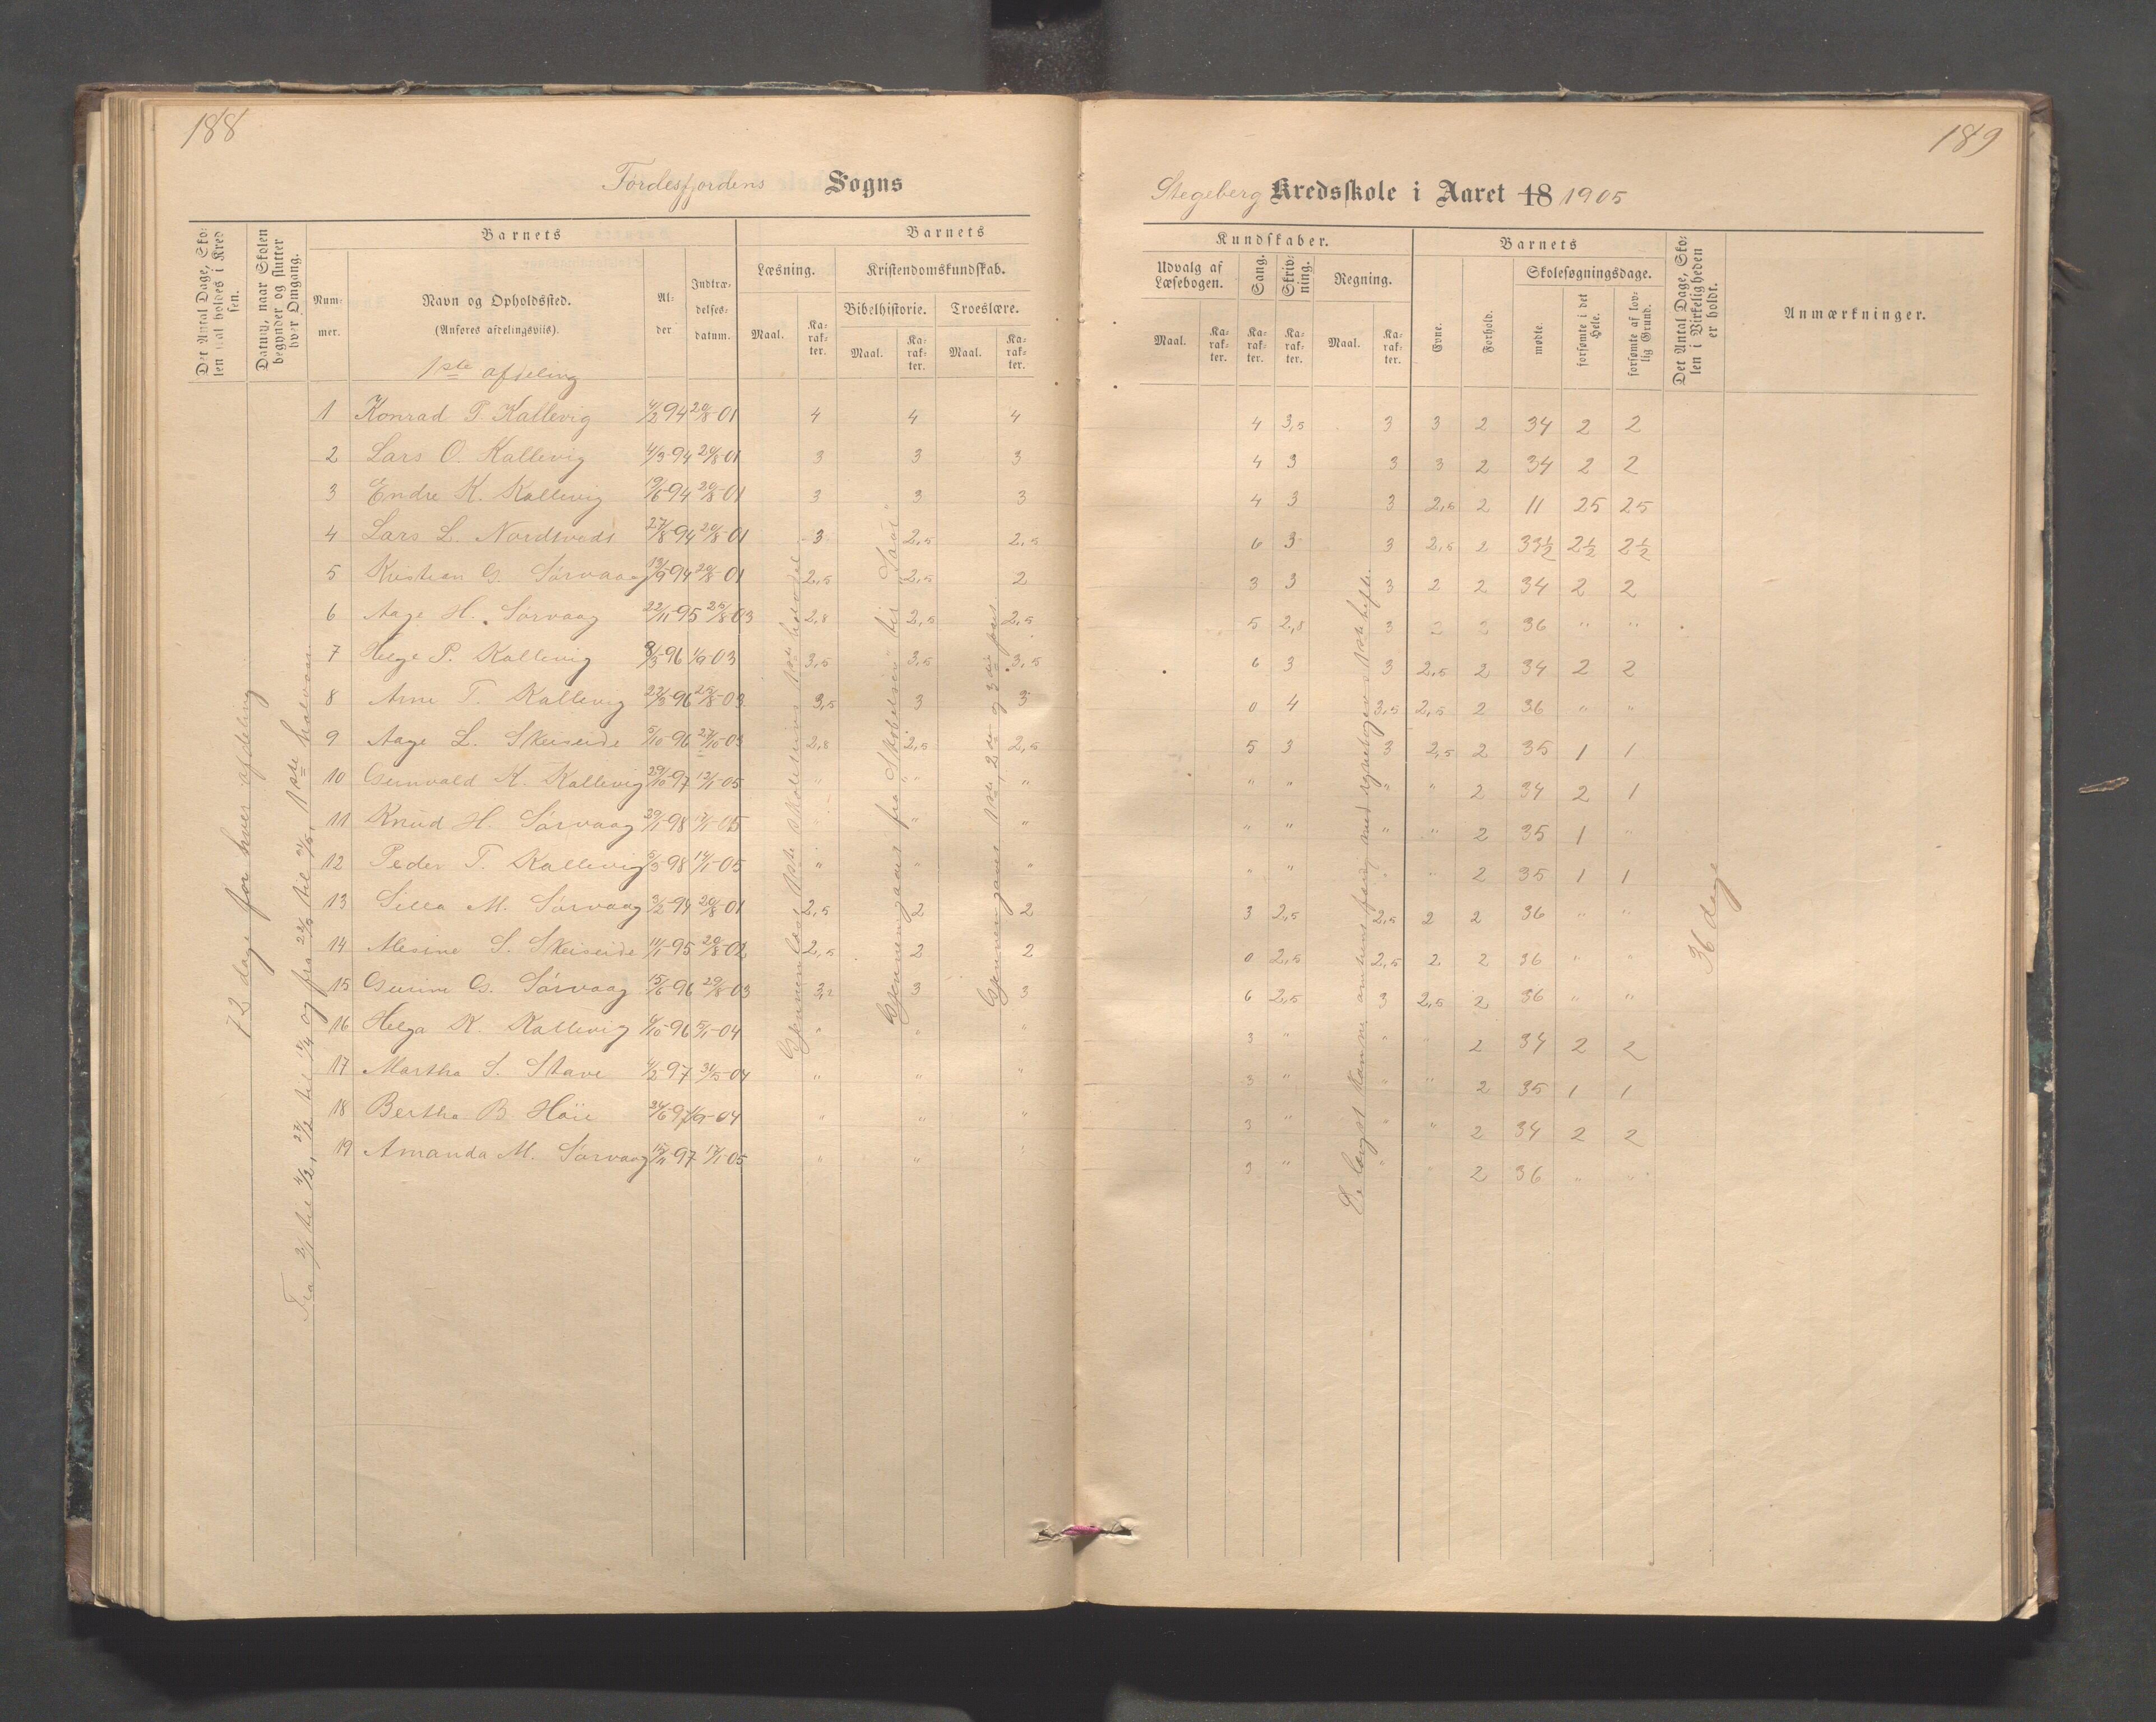 188
Førdesfjordens Sogns
Det Antal Dage, Skolen skal holdes i Kredsen.
Datum, naar Skolen begynder og slutter hver Omgang.
Barnets
Barnets
Nummer.
Navn og Opholdssted.
(Anføres afdelingsviis).
Alder
Indtrædelsesdatum.
Læsning.
Kristendomskundskab.
Bibelhistorie.
Troeslære.
Maal.
Karakter.
Maal.
Karakter.
Maal.
Karakter.
1ste afdeling
1 Konrad T. Kallevig 4/2 94 20/8-01 4 4 4
2 Lars O. Kallevig 4/3-94 20/8-01 3 3 3
3 Endre K. Kallevig 19/6-94 20/8-01 3 3 3
4 Lars L. Nordtveds 27/8-94 20/8-01 3 2,5 2,5
5 Kristian G. Sørvaag 19/9-94 20/8-01 2,5 2,5 2
6 Aage H. Sørvaag 22/11-95 25/8-03 2,8 2,5 2,5
7 Helge P. Kallevig 8/3-96 1/9-03 3,5 3,5 3,5
8 Arne T. Kallevig 22/3-96 25/8-03 3,5 3 3
9 Aage L. Skeiseide 5/10-96 27/10-03 2,8 2,5 2,5
10 Gunvald K. Kallevig 29/10-97 12/1-05 " " "
11 Knud H. Sørvaag 30/1-98 17/1-05 " " "
12 Peder T. Kallevig 5/3-98 14/1-05 " " "
13 Silla M. Sørvaag 3/2-94 20/8-01 2,5 2 2
14 Alesine S. Skeiseide 11/1-95 20/8-02 2,5 2 2
15 Gurine G. Sørvaag 15/6-96 29/8-03 3,2 3 3
16 Helga K. Kallevig 6/10-96 5/1-04 " " "
17 Martha S. Stave 4/2-97 31/5-04 " " "
18 Bertha B. Høie 24/6-97 1/9-04 " " "
19 Amanda M. Sørvaag 15/11-97 17/1-05 " " "
72 dage for hver afdeling
Fra 2/1 til 4/2, 27/2 til 1/4 og fra 22/5 til 3/6, 1ste halvaar
Gjennemlæst 1ste skoletrins 1ste hovedel
Gjennemgaaet fra "Skabelsen" til "Saul"
Gjennemgaaet 1ste, 2den og 3die part
189
Stegeberg Kredsskole i Aaret 18 1905
Kundskaber.
Barnets
Udvalg af Læsebogen.
Sang.
Skrivning.
Regning.
Evne.
Forhold.
Skolesøgningsdage.
Det Antal Dage, Skolen i Virkeligheden er holdt.
Anmærkninger.
Maal.
Karakter.
Karakter.
Karakter.
Maal.
Karakter.
mødte.
forsømte i det Hele.
forsømte af lovlig Grund.
4 3,5 3 3 2 34 2 2
4 3 3 3 2 34 2 2
4 3 3 2,5 2 11 25 25
6 3 3 2,5 2 33½ 2½ 2½
3 3 3 2 2 34 2 2
5 2,8 3 2 2 36 " "
6 3 3 2,5 2 34 2 2
0 4 3,5 2,5 2 36 " "
5 3 3 2,5 2 35 1 1
" " " " 2 34 2 1
" " " " 2 35 1 "
" " " " 2 35 1 1
3 2,5 2,5 2 2 36 " "
0 2,5 2,5 2 2 36 " "
6 2,5 3 2,5 2 36 " "
3 " " " 2 34 2 2
3 " " " 2 35 1 1
3 " " " 2 34 2 2
3 " " " 2 36 " "
De længst komne omtrent færdig med regnebogens 1ste hefte.
36 dage